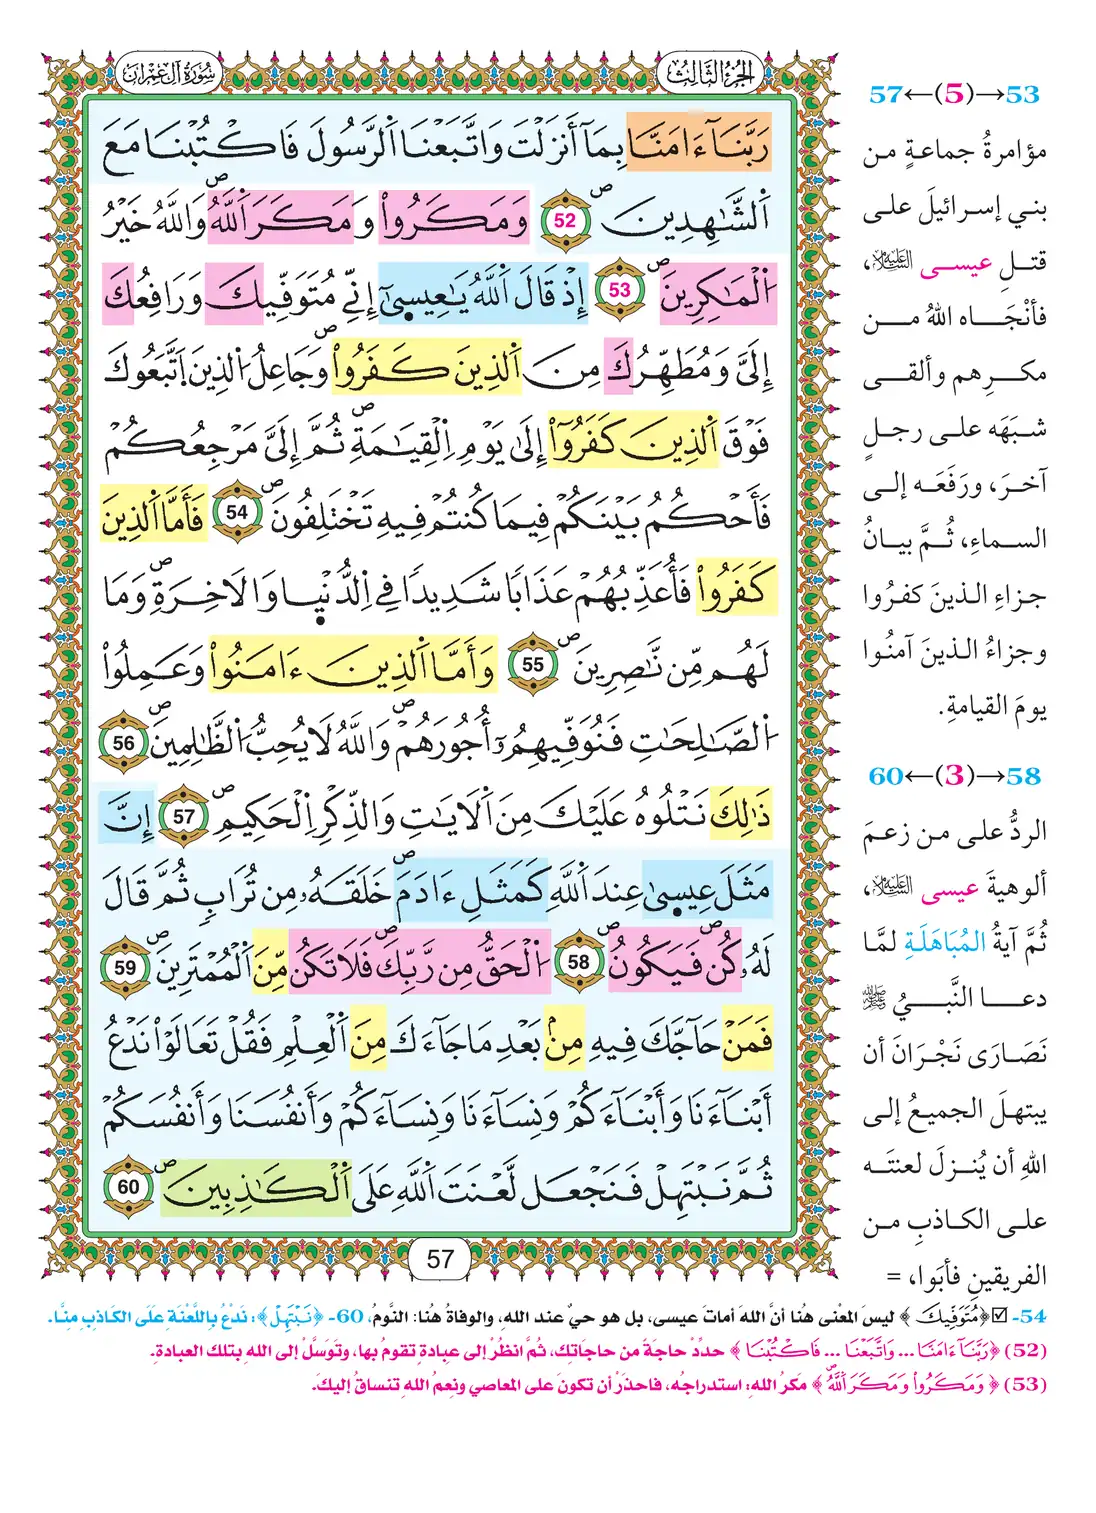 الجزء الثالث
سورة آل عمران
رَبَّنَآ ءَامَنَّا بِمَآ أَنزَلْتَ وَاتَّبَعْنَا اَلرَّسُولَ فَاكْتُبْنَا مَعَ
اَلشَّٰهِدِينَۖ 52 وَمَكَرُواْ وَمَكَرَ اَللَّهُۖ وَاللَّهُ خَيْرُ
اُلْمَٰكِرِينَۖ 53 إِذْ قَالَ اَللَّهُ يَٰعِيسَىٰٓ إِنِّے مُتَوَفِّيكَ وَرَافِعُكَ
إِلَىَّ وَمُطَهِّرُكَ مِنَ اَلذِينَ كَفَرُواْۖ وَجَاعِلُ اُلذِينَ اَتَّبَعُوكَ
فَوْقَ اَلذِينَ كَفَرُوٓاْ إِلَىٰ يَوْمِ اِلْقِيَٰمَةِۖ ثُمَّ إِلَىَّ مَرْجِعُكُمْ
فَأَحْكُمُ بَيْنَكُمْ فِيمَا كُنتُمْ فِيهِ تَخْتَلِفُونَۖ 54 فَأَمَّا اَلذِينَ
كَفَرُواْ فَأُعَذِّبُهُمْ عَذَابًا شَدِيدًا فِے اِلدُّنْيٜا وَالَاخِرَةِۖ وَمَا
لَهُم مِّن نَّٰصِرِينَۖ 55 وَأَمَّا اَلذِينَ ءَامَنُواْ وَعَمِلُواْ
اُلصَّٰلِحَٰتِ فَنُوَفِّيهِمُۥٓ أُجُورَهُمْۖ وَاللَّهُ لَا يُحِبُّ اُلظَّٰلِمِينَۖ 56
ذَٰلِكَ نَتْلُوهُ عَلَيْكَ مِنَ اَلَايَٰتِ وَالذِّكْرِ اِلْحَكِيمِۖ 57 إِنَّ
مَثَلَ عِيسَىٰ عِندَ اَللَّهِ كَمَثَلِ ءَادَمَۖ خَلَقَهُۥ مِن تُرَابٍ ثُمَّ قَالَ
لَهُۥ كُنۖ فَيَكُونُۖ 58 اُلْحَقُّ مِن رَّبِّكَۖ فَلَا تَكُن مِّنَ اَلْمُمْتَرِينَۖ 59
فَمَنْ حَآجَّكَ فِيهِ مِنۢ بَعْدِ مَا جَآءَكَ مِنَ اَلْعِلْمِ فَقُلْ تَعَالَوْاْ نَدْعُ
أَبْنَآءَنَا وَأَبْنَآءَكُمْ وَنِسَآءَنَا وَنِسَآءَكُمْ وَأَنفُسَنَا وَأَنفُسَكُمْ
ثُمَّ نَبْتَهِلْ فَنَجْعَل لَّعْنَتَ اَللَّهِ عَلَى اَلْكَٰذِبِينَۖ 60
57
53→(5)←57
مؤامرةُ جماعةٍ من
بني إسرائيلَ على
قتلِ عيسى عليه السلام،
فأنْجَاه اللهُ من
مكرِهم وألقى
شبَهَه على رجلٍ
آخرَ، ورَفَعَه إلى
السماءِ، ثُمَّ بيانُ
جزاءِ الذينَ كفرُوا
وجزاءُ الذينَ آمنُوا
يومَ القيامةِ.
58→(3)←60
الردُّ على من زعمَ
ألوهيةَ عيسى عليه السلام،
ثُمَّ آيةُ المُبَاهَلَةِ لمَّا
دعا النَّبيُ ﷺ
نَصَارَى نَجْرَانَ أن
يبتهلَ الجميعُ إلى
اللهِ أن يُنزلَ لعنتَه
على الكاذبِ من
الفريقينِ فأبَوا، =
54- ☑﴿مُتَوَفِّيكَ﴾ ليسَ المعْنى هُنا أنَّ اللهَ أماتَ عيسى، بل هو حيٌ عند اللهِ، والوفاةُ هُنا: النَّومُ، 60- ﴿نَبْتَهِلْ﴾: نَدْعُ بِاللَّعْنَةِ عَلَى الكَاذِبِ مِنَّا.
(52) ﴿رَبَّنَآ ءَامَنَّا ... وَاتَّبَعْنَا ... فَاكْتُبْنَا﴾ حدِّدْ حاجةً من حاجَاتِك، ثُمَّ انظُرْ إلى عبادةٍ تقومُ بها، وتوَسلْ إلى اللهِ بتلك العبادة.
(53) ﴿وَمَكَرُواْ وَمَكَرَ اَللَّهُۖ﴾ مَكرُ اللهِ: استدراجُه، فاحذرْ أن تكونَ على المعاصي ونِعمُ اللهِ تنساقُ إليكَ.